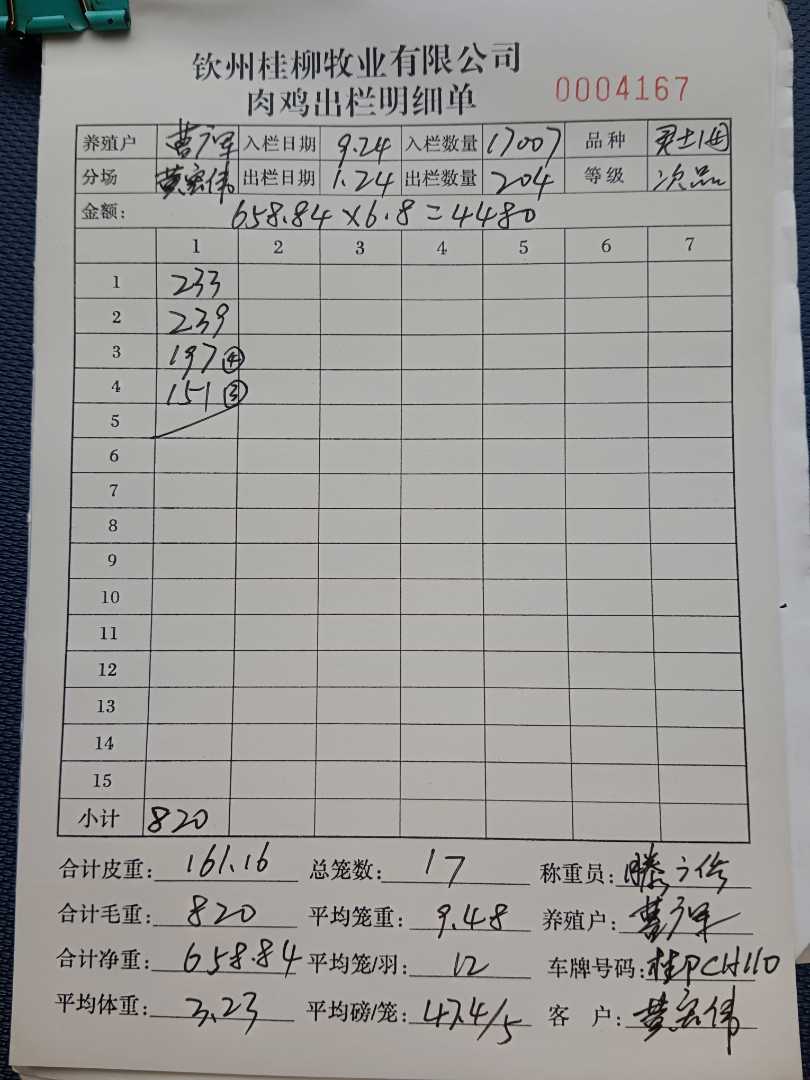 钦州桂柳牧业有限公司
肉鸡出栏明细单 0004167
养殖户 入栏日期 9.24 入栏数量 17007 品种
分场 黄宏伟 出栏日期 1.24 出栏数量 204 等级 次品
金额: 658.84×6.8=4480
1 2 3 4 5 6 7
1 233
2 239
3 197④
4 151③
5
6
7
8
9
10
11
12
13
14
15
小计 820
合计皮重: 161.16 总笼数: 17 称重员:
合计毛重: 820 平均笼重: 9.48 养殖户:
合计净重: 658.84 平均笼/羽: 12 车牌号码:
平均体重: 3.23 平均磅/笼: 47.4/5 客 户: 黄宏伟